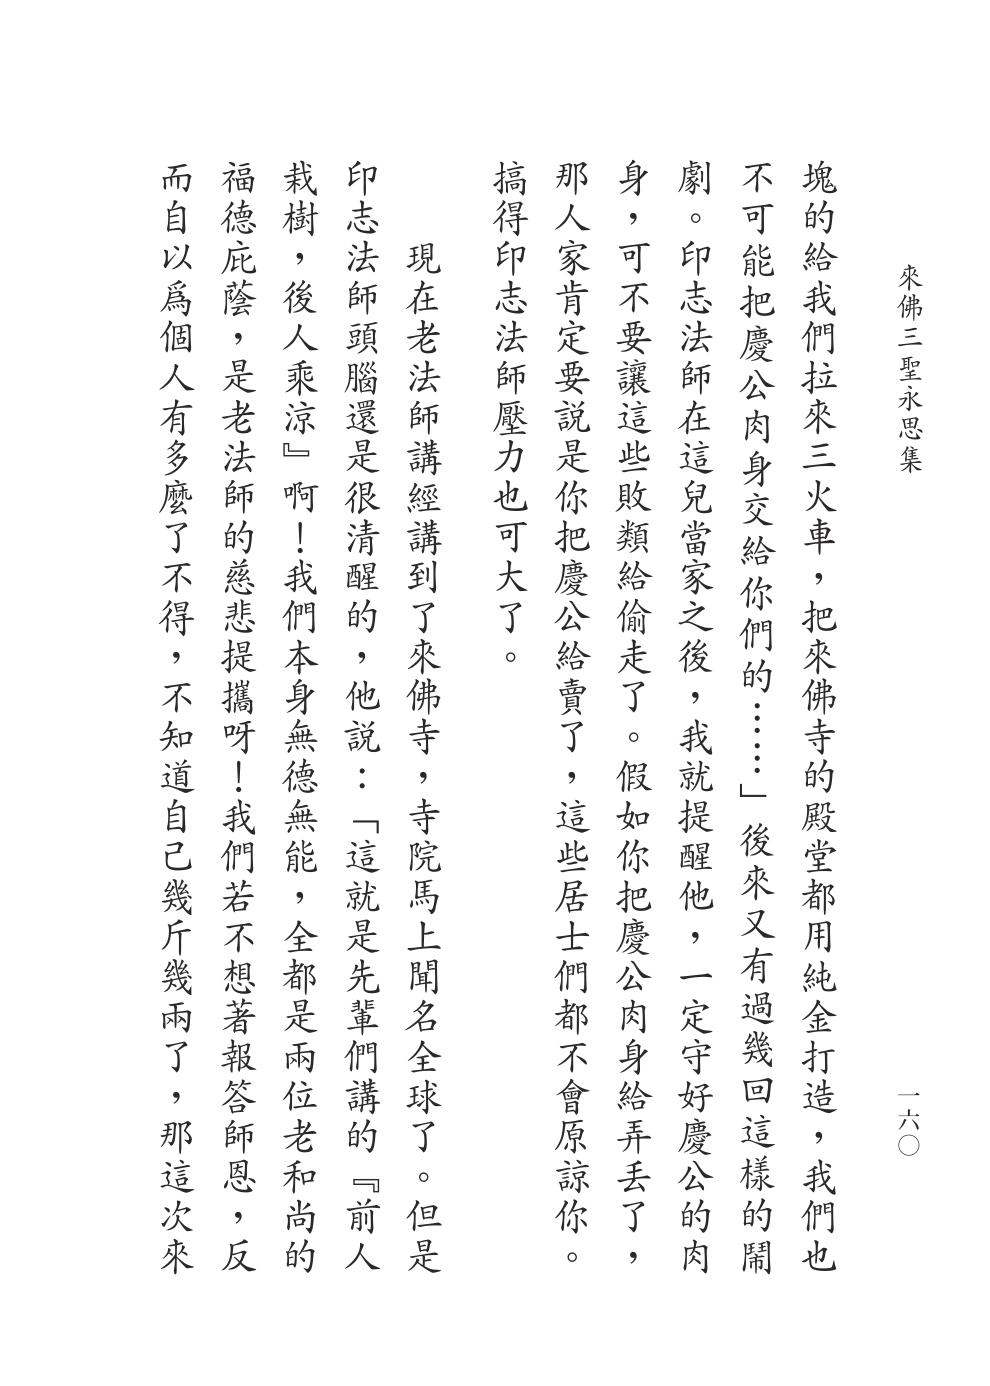 來佛三聖永思集
一六〇
塊的給我們拉來三火車，把來佛寺的殿堂都用純金打造，我們也
不可能把慶公肉身交給你們的……」後來又有過幾回這樣的鬧
劇。印志法師在這兒當家之後，我就提醒他，一定守好慶公的肉
身，可不要讓這些敗類給偷走了。假如你把慶公肉身給弄丟了，
那人家肯定要説是你把慶公給賣了，這些居士們都不會原諒你。
搞得印志法師壓力也可大了。
現在老法師講經講到了來佛寺，寺院馬上聞名全球了。但是
印志法師頭腦還是很清醒的，他説：「這就是先輩們講的『前人
栽樹，後人乘涼』啊！我們本身無德無能，全都是兩位老和尚的
福德庇蔭，是老法師的慈悲提攜呀！我們若不想著報答師恩，反
而自以爲個人有多麼了不得，不知道自己幾斤幾兩了，那這次來